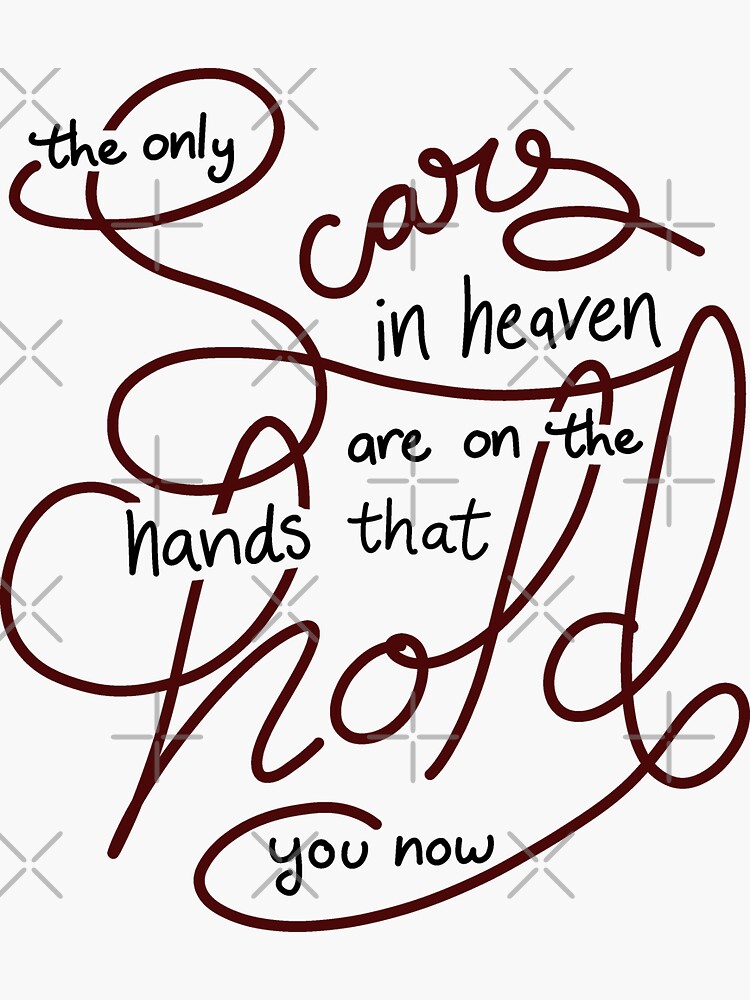 the only
Scars
in heaven
are on the
hands that
hold
you now